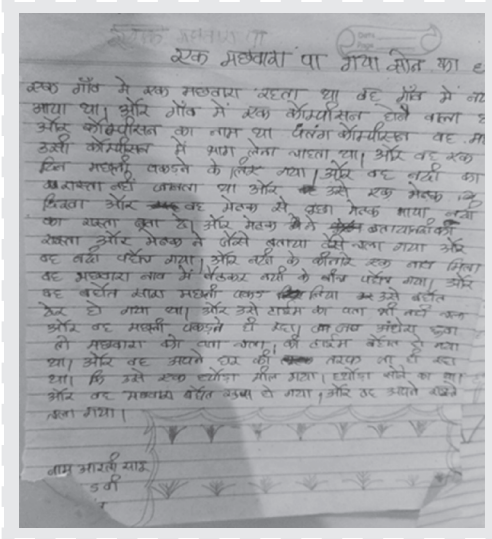 एक मछवारा पा गया सोन का
एक गाँव मे एक मछवारा रहता था वह गाँव में नय
आया था। और गाँव में एक कॉम्पीसन होने वाला
और कॉम्पीसन का नाम था पतंग कॉम्पीसन वह
उसी कॉम्पीसन में भाग लेना चाहता था। और वह एक
दिन मछली पकड़ने के लिए गया। और वह नदी का
रास्ता नहीं जानता था और उसे एक मेढक
दिखा और वह मेढक से पूछा मेढक भाया नदी
का रास्ता बता दे। और मेढक ने
रास्ता और मेढक ने जैसे बताया वैसे चला गया और
वह नदी पहुँच गया। और नदी के कीनारे एक नाव मिला
वह मछवारा नाव में बैठकर नदी के बीच पहुँच गया। और
वह बहोत सारा मछली पकड़ लिया उसे बहोत
देर हो गया था। और उसे टाईम का पता भी नहीं चला
और वह मछली पकड़ने ही रहा। जब अंधेरा हुआ
तो मछवारा को पता चला की टाईम बहोत हो गया
था। और वह अपने घर की तरफ जा ही रहा
था। कि उसे एक हथौड़ा मील गया। हथौड़ा सोने का था।
और वह मछवारा बहोत खुश हो गया। और वह अपने रास्ते
चला गया।
नाम आरती साहू
5 वी